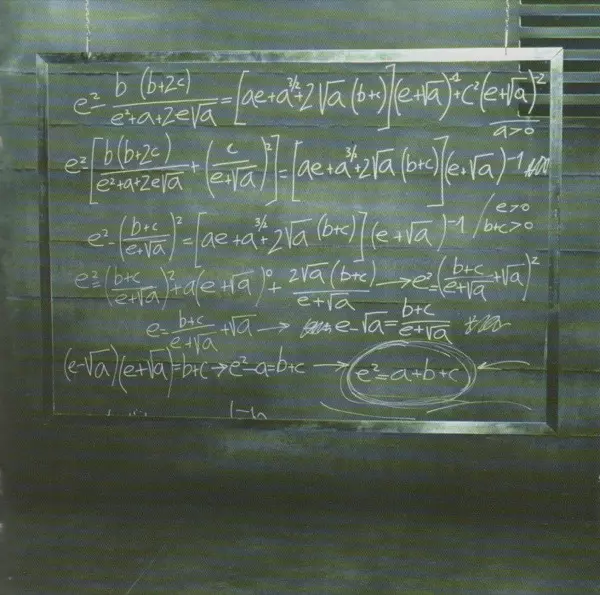 e² - b (b+2c) / e²+a+2e√a = [ae+a^3/2+2√a (b+c)](e+√a)^-1+c²(e+√a)^-2
a>0
e²-[b(b+2c) / e²+a+2e√a + (c / e+√a)²] = [ae+a^3/2+2√a (b+c)](e+√a)^-1
e²-(b+c / e+√a)² = [ae+a^3/2+2√a (b+c)] (e+√a)^-1 / e>0 b+c>0
e²=(b+c / e+√a)²+a(e+√a)^0+ 2√a(b+c) / e+√a → e²=(b+c / e+√a+√a)²
e=b+c / e+√a+√a → e-√a=b+c / e+√a
(e-√a)(e+√a)=b+c→e²-a=b+c → e²=a+b+c ←